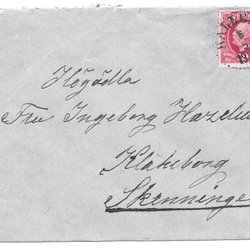 Högädla
Fru Ingeborg Hazeliu
Kläkeborg
Skenninge